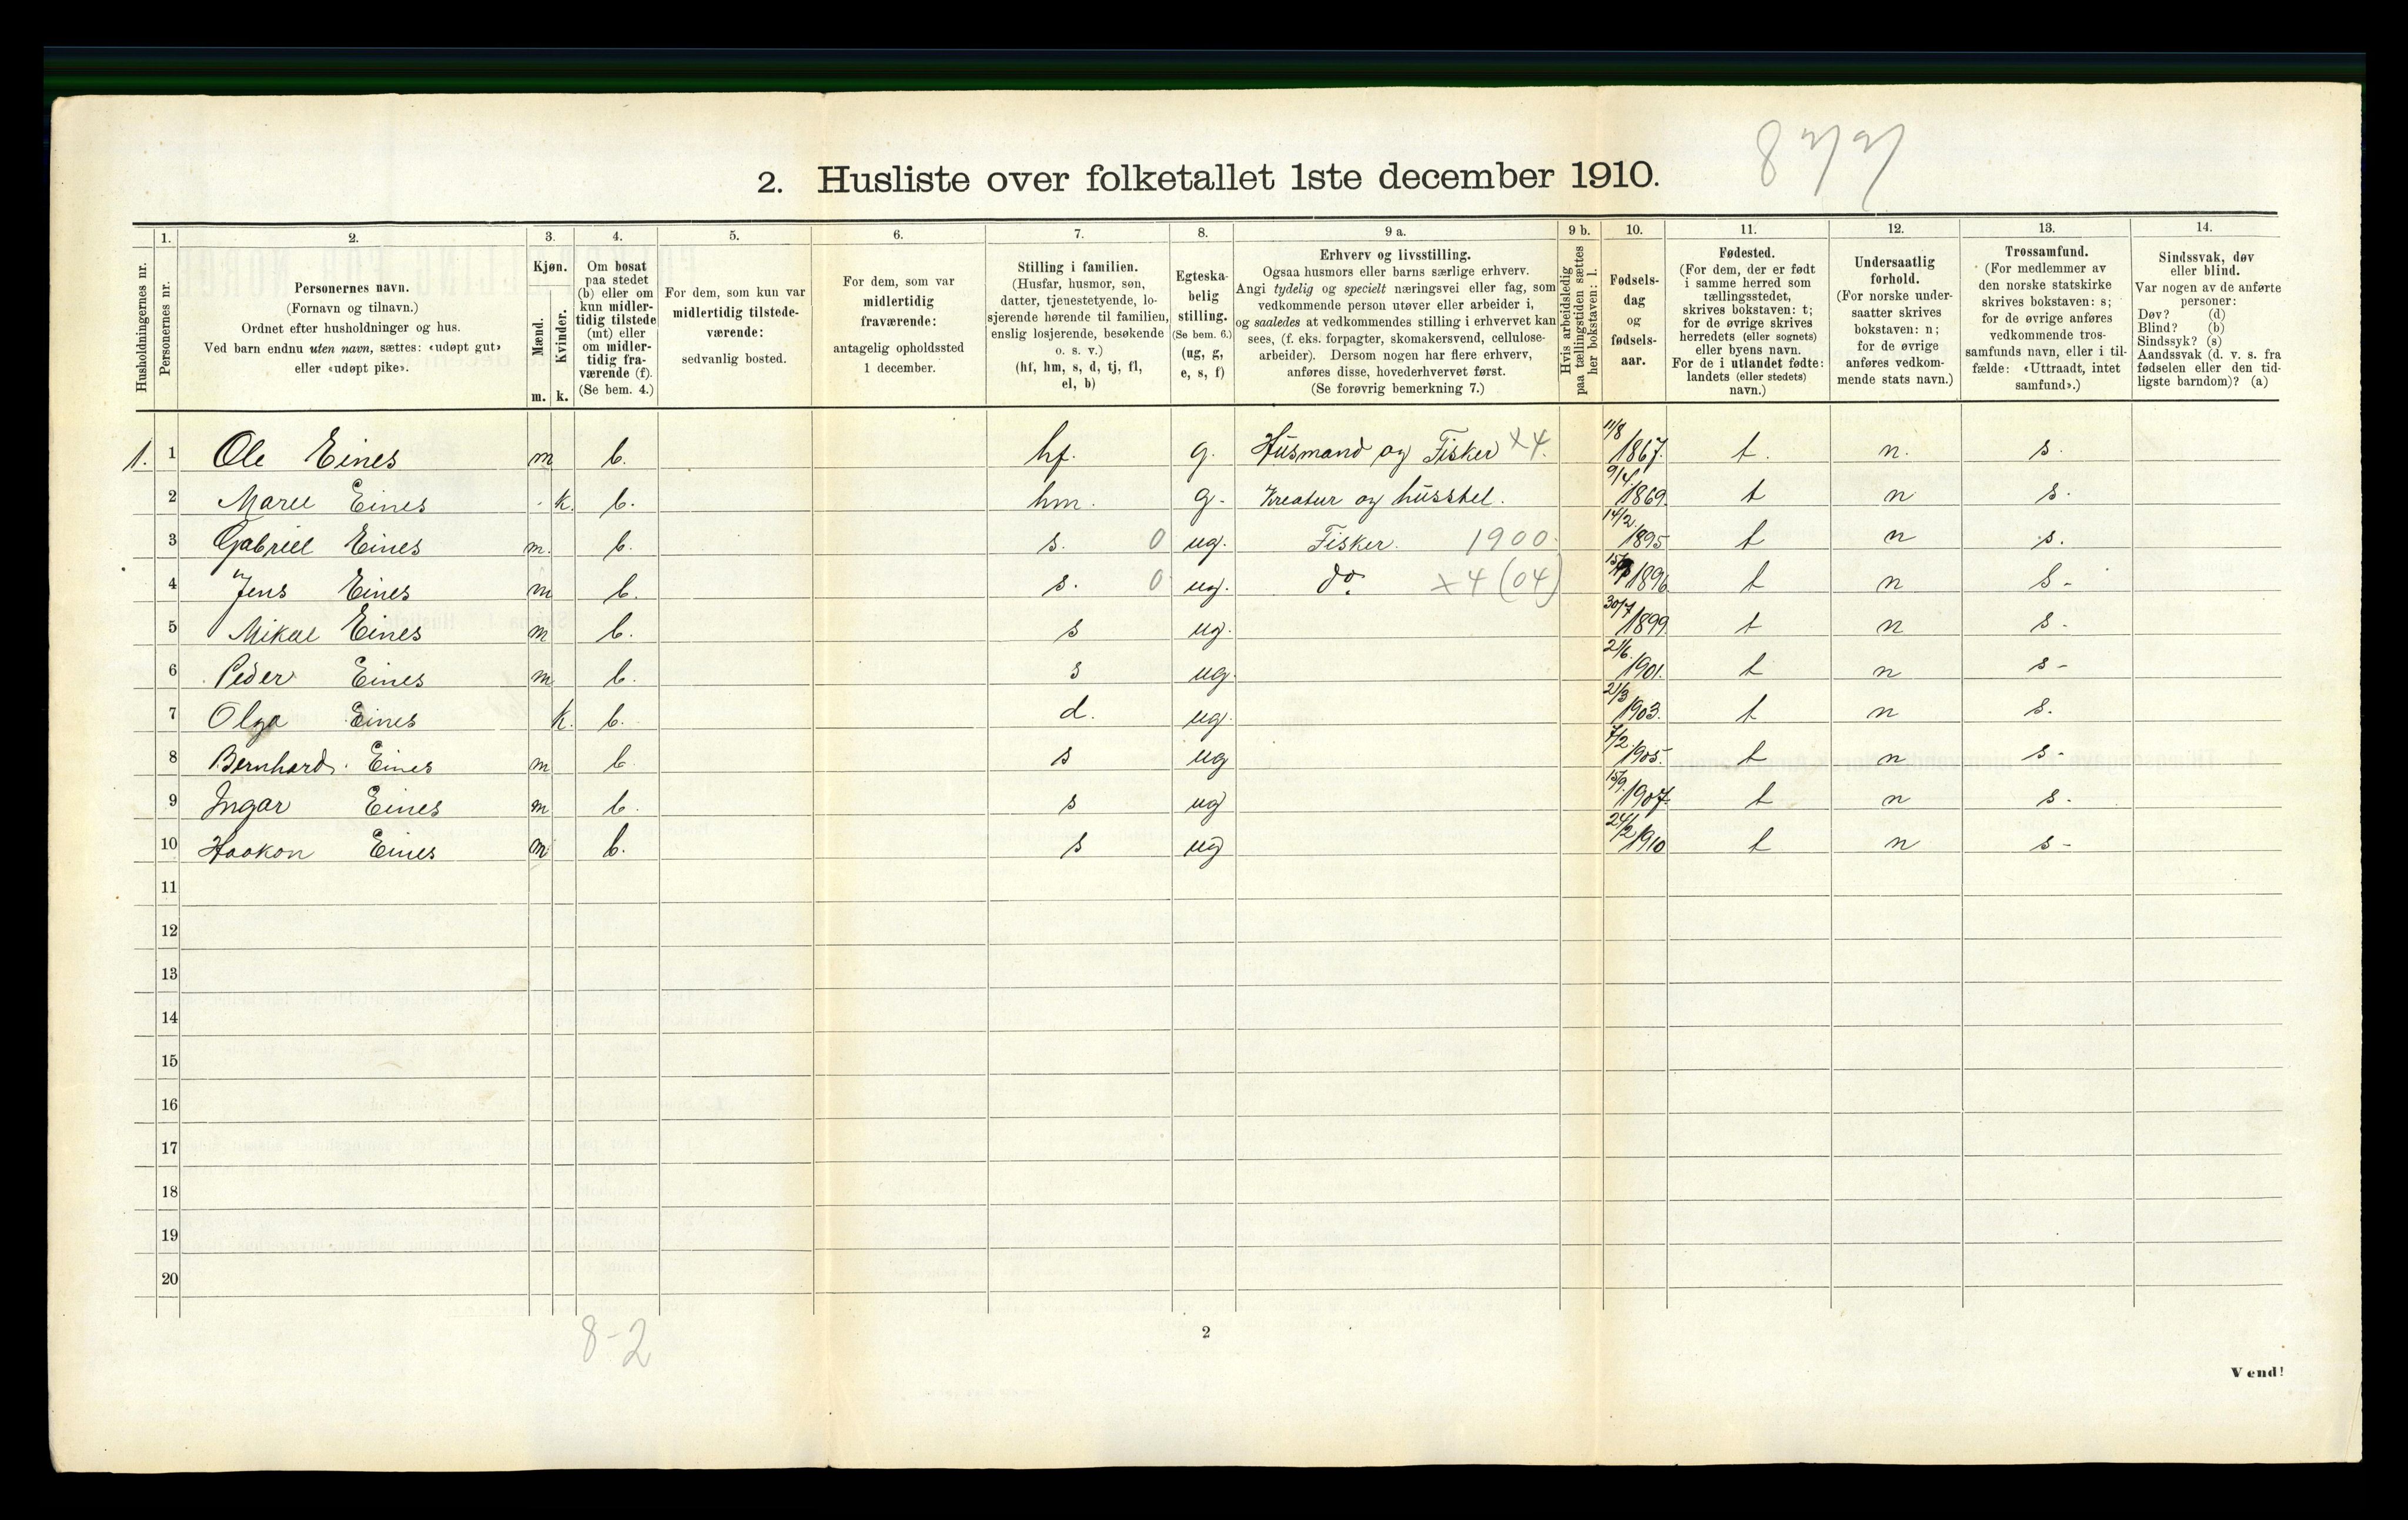 8 2/2/
2. Husliste over folketallet 1ste december 1910.
Husholdningernes nr.
1.
Personernes nr.
2.
Personernes navn.
(Fornavn og tilnavn.)
Ordnet efter husholdninger og hus.
Ved barn endnu uten navn, sættes: «udøpt gut»
eller «udøpt pike».
3.
Kjøn.
Mænd.
Kvinder.
m. k.
4.
Om bosat
paa stedet
(b) eller om
kun midler-
tidig tilstede
(mt) eller
om midler-
tidig fra-
værende (f).
(Se bem. 4.)
5.
For dem, som kun var
midlertidig tilstede-
værende:
sedvanlig bosted.
6.
For dem, som var
midlertidig
fraværende:
antagelig opholdssted
1 december.
7.
Stilling i familien.
(Husfar, husmor, søn,
datter, tjenestetyende, lo-
sjerende hørende til familien,
enslig losjerende, besøkende
o. s. v.)
(hf, hm, s, d, tj, fl,
el, b)
8.
Egteska-
belig
stilling.
(Se bem. 6.)
(ug, g,
e, s, f)
9 a.
Erhverv og livsstilling.
Ogsaa husmors eller barns særlige erhverv.
Angi tydelig og specielt næringsvei eller fag, som
vedkommende person utøver eller arbeider i,
og saaledes at vedkommendes stilling i erhvervet kan
sees, (f. eks. forpagter, skomakersvend, cellulose-
arbeider). Dersom nogen har flere erhverv,
anføres disse, hovederhvervet først.
(Se forøvrig bemerkning 7.)
9 b.
Hvis arbeidsledig
paa tællingstiden sættes
her bokstaven: l.
10.
Fødsels-
dag
og
fødsels-
aar.
11.
Fødested.
(For dem, der er født
i samme herred som
tællingsstedet,
skrives bokstaven: t;
for de øvrige skrives
herredets (eller sognets)
eller byens navn.
For de i utlandet fødte:
landets (eller stedets)
navn.)
12.
Undersaatlig
forhold.
(For norske under-
saatter skrives
bokstaven: n;
for de øvrige
anføres vedkom-
mende stats navn.)
13.
Trossamfund.
(For medlemmer av
den norske statskirke
skrives bokstaven: s;
for de øvrige anføres
vedkommende tros-
samfunds navn, eller i til-
fælde: «Uttraadt, intet
samfund».)
14.
Sindssvak, døv
eller blind.
Var nogen av de anførte
personer:
Døv? (d)
Blind? (b)
Sindssyk? (s)
Aandssvak (d. v. s. fra
fødselen eller den tid-
ligste barndom)? (a)
1. 1 Ole Eines m b. hf. g. Husmand og Fisker x4. 11/8 1867. t. n. s.
2 Marie Eines k. b. hm. g. Kreatur og husstel. 9/4. 1869. t n s.
3 Gabriel Eines m. b. s. 0 ug. Fisker. 1900. 14/2. 1895 t n s.
4 Jens Eines m b. s. 0 ug. do. x4 (04) 1896. t n s-
5 Mikal Eines m b. s ug. 30/7 1899. t n s-
6 Peder Eines m b. s ug. 21/6. 1901. t n s-
7 Olga Eines k. b. d. ug. 21/3 1903. t n s.
8 Bernhard. Eines m b s ug 7/2. 1905. t n s-
9 Ingar Eines m b. s ug 15/9. 1907. t n s.
10 Haakon Eines m b. s ug 24/2 1910 t n s-
11
12
13
14
15
16
17
18
19
20
8-2
2
Vend!